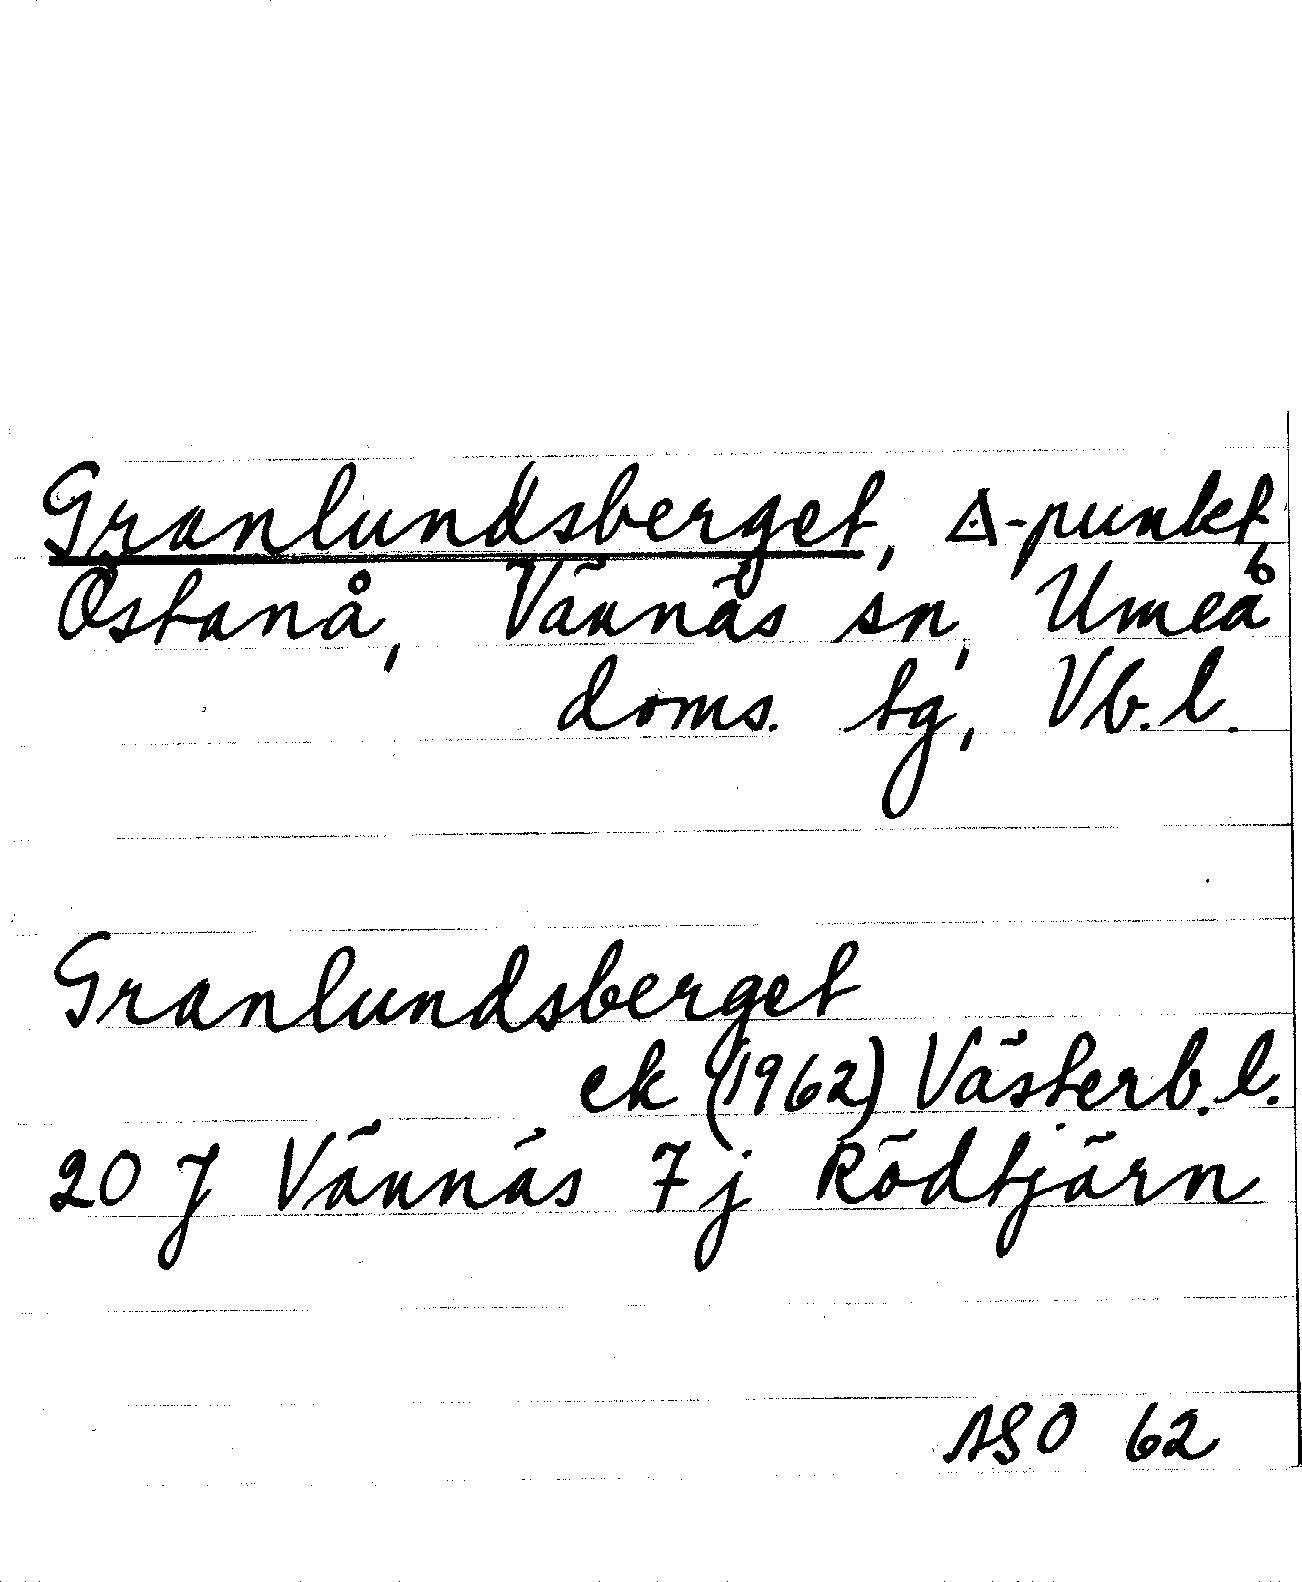 Granlundsberget, △-punkt,
Östanå, Vännäs sn, Umeå
doms. tg, Vb. l.
Granlundsberget
ek (1962) Västerb. l.
20 J Vännäs 7j Rödtjärn
ASO 62